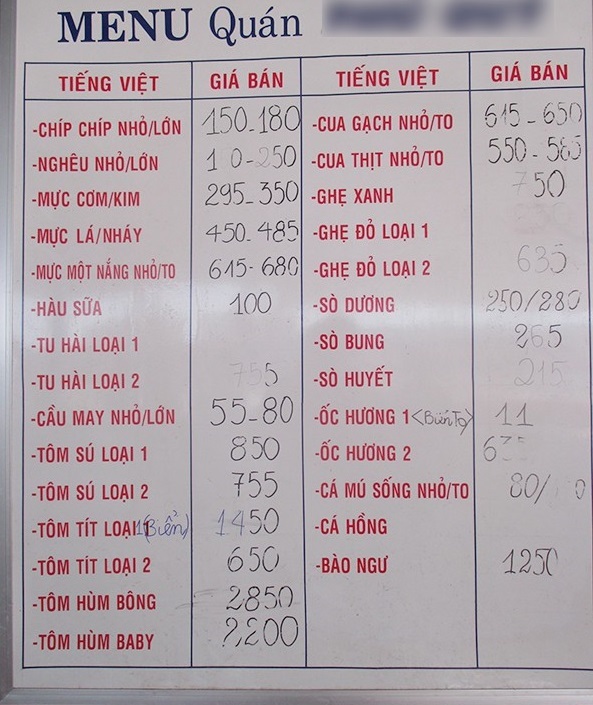 MENU Quán
TIẾNG VIỆT GIÁ BÁN
-CHÍP CHÍP NHỎ/LỚN 150-180
-NGHÊU NHỎ/LỚN
-MỰC CƠM/KIM 295-350
-MỰC LÁ/NHÁY 450-485
-MỰC MỘT NẮNG NHỎ/TO 615-680
-HÀU SỮA 100
-TU HÀI LOẠI 1
-TU HÀI LOẠI 2 755
-CẦU MAY NHỎ/LỚN 55-80
-TÔM SÚ LOẠI 1 850
-TÔM SÚ LOẠI 2 755
-TÔM TÍT LOẠI 1 (Biển) 1450
-TÔM TÍT LOẠI 2 650
-TÔM HÙM BÔNG 2850
-TÔM HÙM BABY 2200
TIẾNG VIỆT GIÁ BÁN
-CUA GẠCH NHỎ/TO 615-650
-CUA THỊT NHỎ/TO 550-585
-GHẸ XANH 750
-GHẸ ĐỎ LOẠI 1
-GHẸ ĐỎ LOẠI 2 635
-SÒ DƯƠNG 250/280
-SÒ BUNG 265
-SÒ HUYẾT 215
-ỐC HƯƠNG 1 11
-ỐC HƯƠNG 2
-CÁ MÚ SỐNG NHỎ/TO 80/
-CÁ HỒNG
-BÀO NGƯ 1250